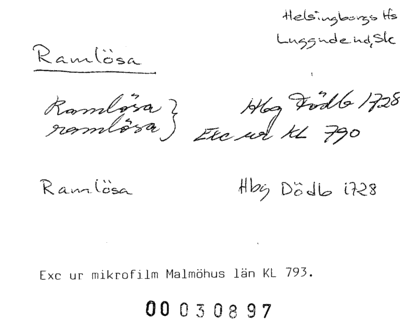 Helsingborgs Hs
Luggude hd, Sk
Ramlösa
Ramlösa } Hbg Dödb 1728
ramlösa } Exc ur KL 790
Ramlösa Hbg Dödb 1728
Exc ur mikrofilm Malmöhus län KL 793.
00030897